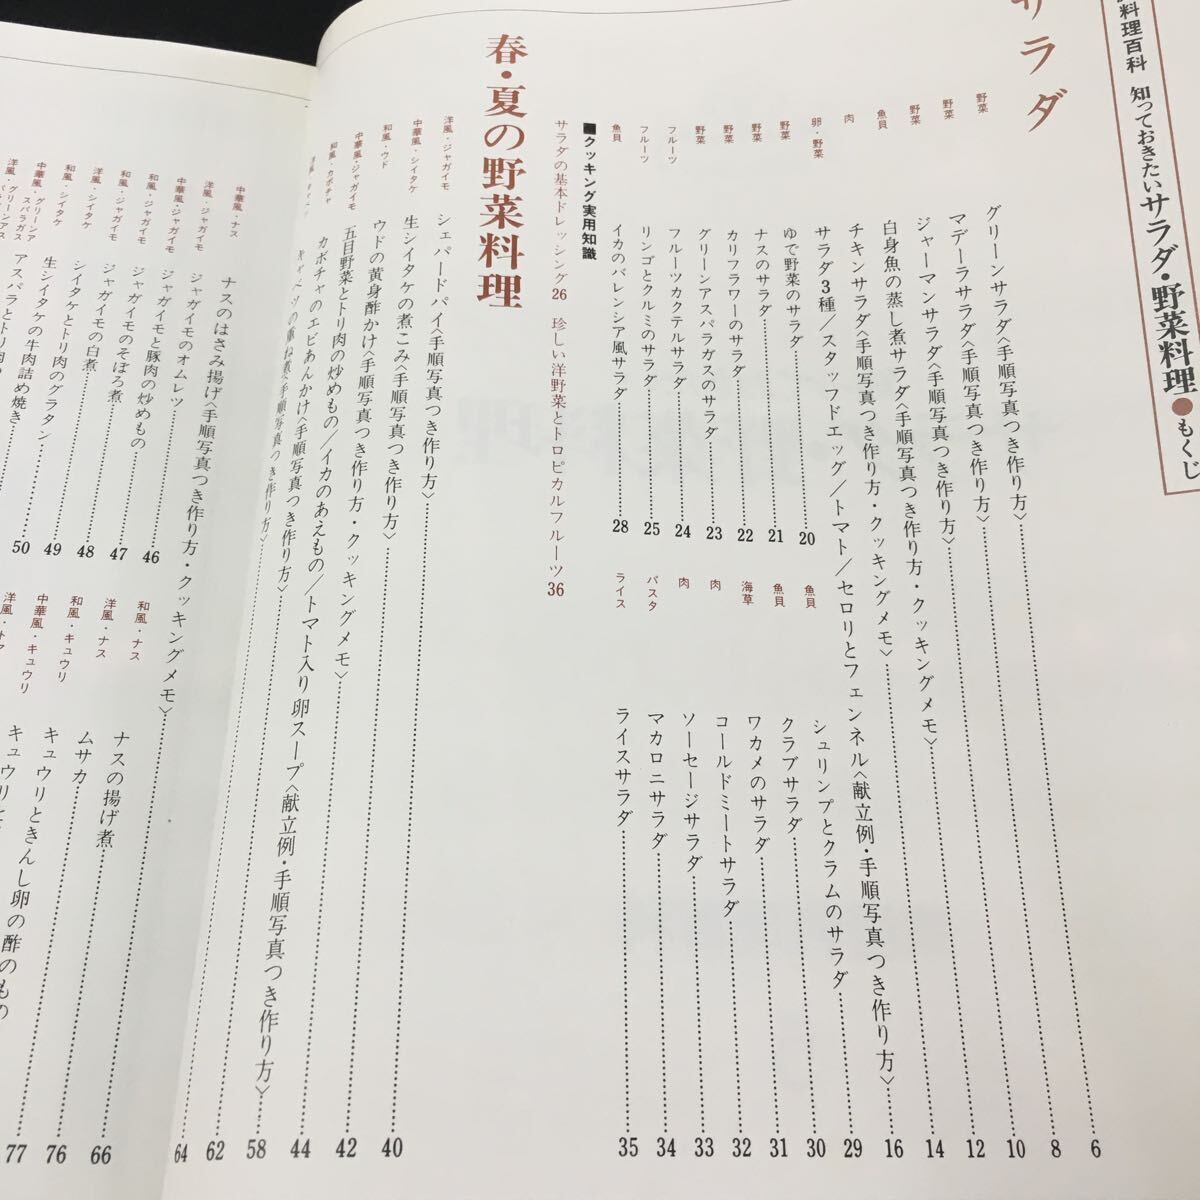 料理百科 知っておきたいサラダ・野菜料理●もくじ
サラダ
野菜 グリーンサラダ〈手順写真つき作り方〉 6
野菜 マデーラサラダ〈手順写真つき作り方〉 8
野菜 ジャーマンサラダ〈手順写真つき作り方〉 10
魚貝 白身魚の蒸し煮サラダ〈手順写真つき作り方・クッキングメモ〉 12
肉 チキンサラダ〈手順写真つき作り方・クッキングメモ〉 14
卵・野菜 サラダ3種/スタッフドエッグ/トマト/セロリとフェンネル〈献立例・手順写真つき作り方〉 16
野菜 ゆで野菜のサラダ 20
野菜 ナスのサラダ 21
野菜 カリフラワーのサラダ 22
野菜 グリーンアスパラガスのサラダ 23
フルーツ フルーツカクテルサラダ 24
フルーツ リンゴとクルミのサラダ 25
魚貝 イカのバレンシア風サラダ 28
魚貝 シュリンプとクラムのサラダ 29
魚貝 クラブサラダ 30
海草 ワカメのサラダ 31
肉 コールドミートサラダ 32
肉 ソーセージサラダ 33
パスタ マカロニサラダ 34
ライス ライスサラダ 35
■クッキング実用知識
サラダの基本ドレッシング26 珍しい洋野菜とトロピカルフルーツ36
春・夏の野菜料理
洋風・ジャガイモ シェパードパイ〈手順写真つき作り方〉 40
中華風・シイタケ 生シイタケの煮こみ〈手順写真つき作り方〉 42
和風・ウド ウドの黄身酢かけ〈手順写真つき作り方・クッキングメモ〉 44
中華風・ジャガイモ 五目野菜とトリ肉の炒めもの/イカのあえもの/トマト入り卵スープ〈献立例・手順写真つき作り方〉 58
和風・カボチャ カボチャのエビあんかけ〈手順写真つき作り方〉 62
の重ね煮〈手順写真つき作り方〉 64
中華風・ナス ナスのはさみ揚げ〈手順写真つき作り方・クッキングメモ〉
洋風・ジャガイモ ジャガイモのオムレツ 46
中華風・ジャガイモ ジャガイモと豚肉の炒めもの 47
和風・ジャガイモ ジャガイモのそぼろ煮 48
和風・ジャガイモ ジャガイモの白煮 49
洋風・シイタケ シイタケとトリ肉のグラタン 50
和風・シイタケ 生シイタケの牛肉詰め焼き
中華風・グリーンアスパラガス アスパラとトリ肉
洋風・グリーンアス
和風・ナス ナスの揚げ煮 66
洋風・ナス ムサカ 76
和風・キュウリ キュウリときんし卵の酢のもの 77
中華風・キュウリ キュウリと